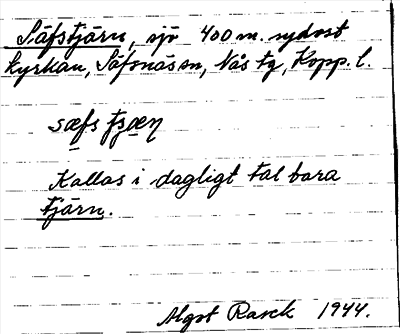 Säfstjärn, sjö 400 m. sydost
kyrkan, Säfsnäs sn, Nås tg, Kopp. l.
sæfs tjæṇ
Kallas i dagligt tal bara
tjärn.
Algot Rasck 1944.